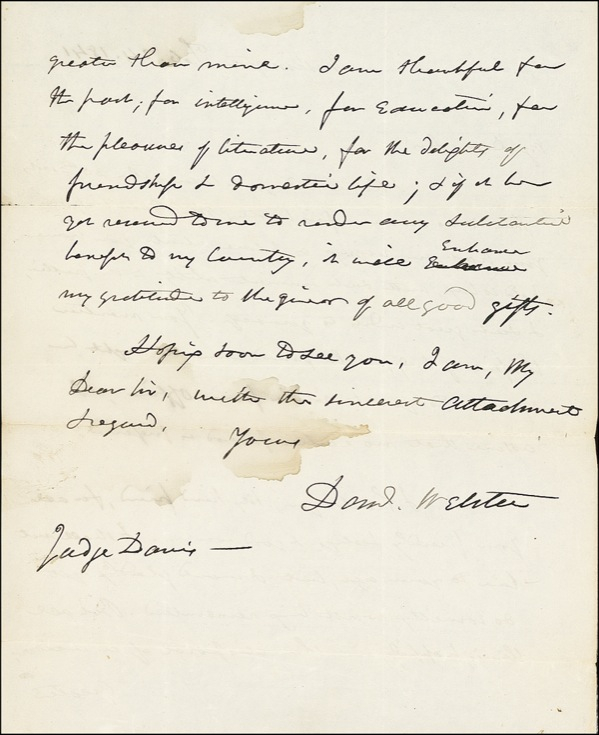 greater than mine. I am thankful for
the past; for intelligence, for Education, for
the pleasures of literature, for the delights of
friendship & domestic life; & if it be
yet reserved to me to render any substantial
benefit to my Country, it will
Enhance
my gratitude to the giver of all good gifts.
Hoping soon to see you, I am, My
Dear Sir, with the sincerest attachment
& regard,
Yours
Danl. Webster
Judge Davis —